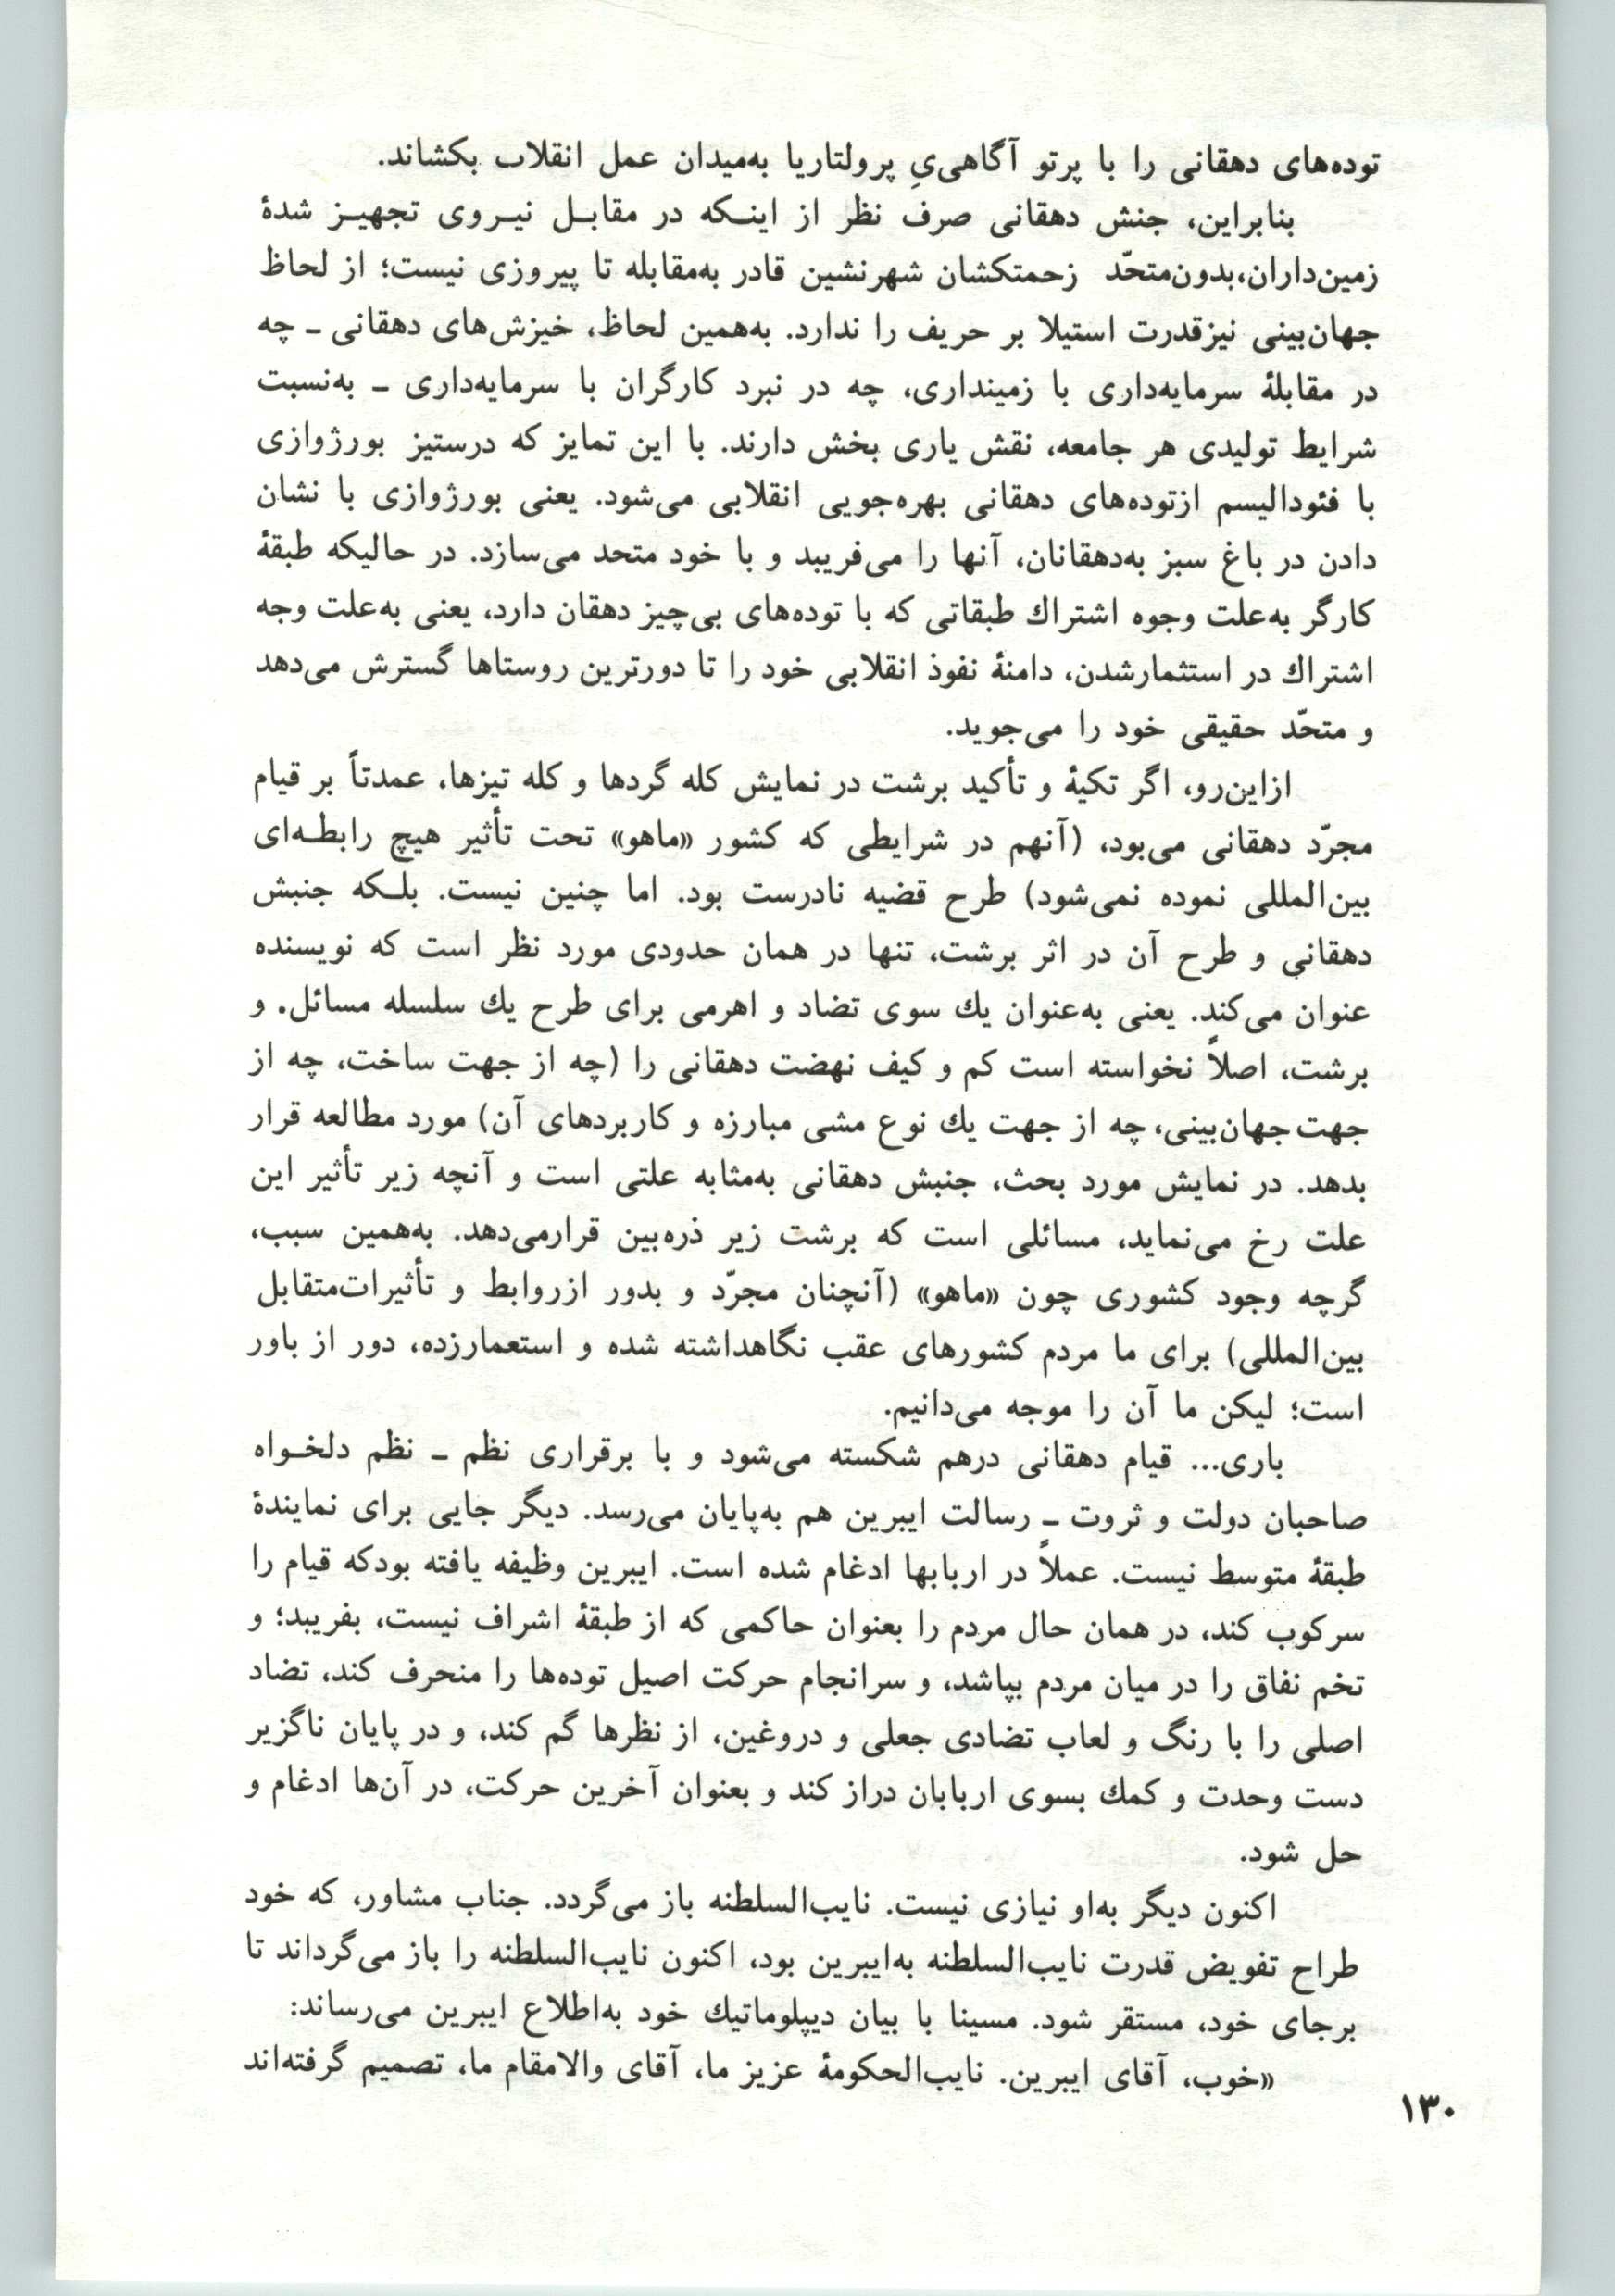 توده‌های دهقانی را با پرتو آگاهی‌یِ پرولتاریا به‌میدان عمل انقلاب بکشاند.
بنابراین، جنش دهقانی صرف نظر از اینـکه در مقابـل نیـروی تجهیـز شدهٔ
زمین‌داران،بدون‌متحّد زحمتکشان شهرنشین قادر به‌مقابله تا پیروزی نیست؛ از لحاظ
جهان‌بینی نیزقدرت استیلا بر حریف را ندارد. به‌همین لحاظ، خیزش‌های دهقانی ـ چه
در مقابلهٔ سرمایه‌داری با زمینداری، چه در نبرد کارگران با سرمایه‌داری ـ به‌نسبت
شرایط تولیدی هر جامعه، نقش یاری بخش دارند. با این تمایز که درستیز بورژوازی
با فئودالیسم ازتوده‌های دهقانی بهره‌جویی انقلابی می‌شود. یعنی بورژوازی با نشان
دادن در باغ سبز به‌دهقانان، آنها را می‌فریبد و با خود متحد می‌سازد. در حالیکه طبقهٔ
کارگر به‌علت وجوه اشتراك طبقاتی که با توده‌های بی‌چیز دهقان دارد، یعنی به‌علت وجه
اشتراك در استثمارشدن، دامنهٔ نفوذ انقلابی خود را تا دورترین روستاها گسترش می‌دهد
و متحّد حقیقی خود را می‌جوید.
ازاین‌رو، اگر تکیهٔ و تأکید برشت در نمایش کله گردها و کله تیزها، عمدتاً بر قیام
مجرّد دهقانی می‌بود، (آنهم در شرایطی که کشور «ماهو» تحت تأثیر هیچ رابطـه‌ای
بین‌المللی نموده نمی‌شود) طرح قضیه نادرست بود. اما چنین نیست. بلـکه جنبش
دهقانی و طرح آن در اثر برشت، تنها در همان حدودی مورد نظر است که نویسنده
عنوان می‌کند. یعنی به‌عنوان یك سوی تضاد و اهرمی برای طرح یك سلسله مسائل. و
برشت، اصلاً نخواسته است کم و کیف نهضت دهقانی را (چه از جهت ساخت، چه از
جهت جهان‌بینی، چه از جهت یك نوع مشی مبارزه و کاربردهای آن) مورد مطالعه قرار
بدهد. در نمایش مورد بحث، جنبش دهقانی به‌مثابه علتی است و آنچه زیر تأثیر این
علت رخ می‌نماید، مسائلی است که برشت زیر ذره‌بین قرارمی‌دهد. به‌همین سبب،
گرچه وجود کشوری چون «ماهو» (آنچنان مجرّد و بدور ازروابط و تأثیرات‌متقابل
بین‌المللی) برای ما مردم کشورهای عقب نگاهداشته شده و استعمارزده، دور از باور
است؛ لیکن ما آن را موجه می‌دانیم.
باری... قیام دهقانی درهم شکسته می‌شود و با برقراری نظم ـ نظم دلخـواه
صاحبان دولت و ثروت ـ رسالت ایبرین هم به‌پایان می‌رسد. دیگر جایی برای نمایندهٔ
طبقهٔ متوسط نیست. عملاً در اربابها ادغام شده است. ایبرین وظیفه یافته بودکه قیام را
سرکوب کند، در همان حال مردم را بعنوان حاکمی که از طبقهٔ اشراف نیست، بفریبد؛ و
تخم نفاق را در میان مردم بپاشد، و سرانجام حرکت اصیل توده‌ها را منحرف کند، تضاد
اصلی را با رنگ و لعاب تضادی جعلی و دروغین، از نظرها گم کند، و در پایان ناگزیر
دست وحدت و کمك بسوی اربابان دراز کند و بعنوان آخرین حرکت، در آن‌ها ادغام و
حل شود.
اکنون دیگر به‌او نیازی نیست. نایب‌السلطنه باز می‌گردد. جناب مشاور، که خود
طراح تفویض قدرت نایب‌السلطنه به‌ایبرین بود، اکنون نایب‌السلطنه را باز می‌گرداند تا
برجای خود، مستقر شود. مسینا با بیان دیپلوماتیك خود به‌اطلاع ایبرین می‌رساند:
«خوب، آقای ایبرین. نایب‌الحکومهٔ عزیز ما، آقای والامقام ما، تصمیم گرفته‌اند
۱۳۰